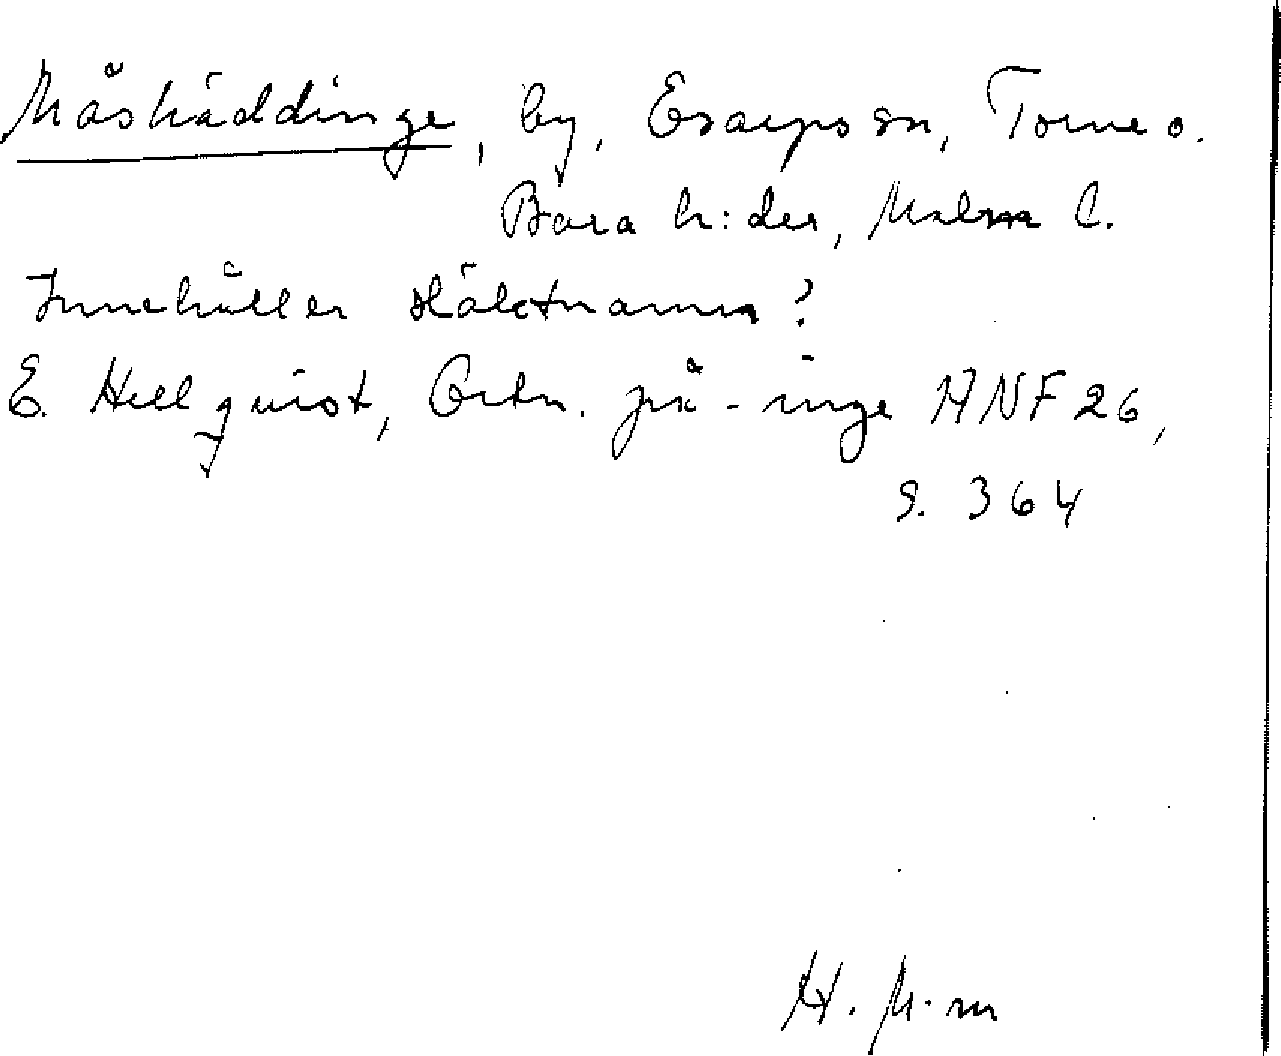 Måskäddinge, by, Esarps sn, Torne o.
Bara h:der, Malm l.
Innehåller släktnamn?
E. Hellquist, Ortn. på -inge ANF 26,
s. 364
H. M-m